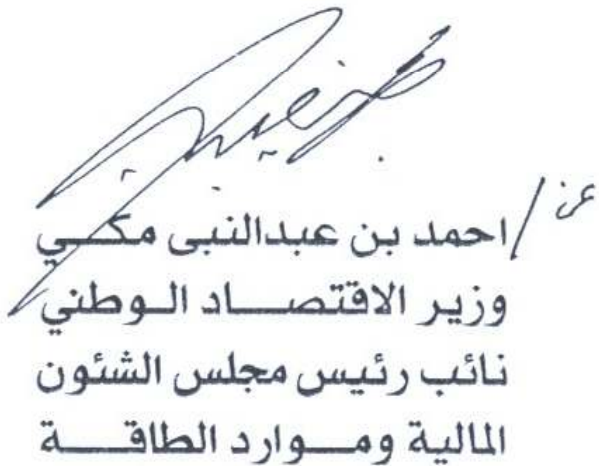 عن / احمد بن عبدالنبى مكـــي
وزير الاقتصـــــاد الـوطني
نائب رئيس مجلس الشئون
المالية ومـــوارد الطاقـــــة